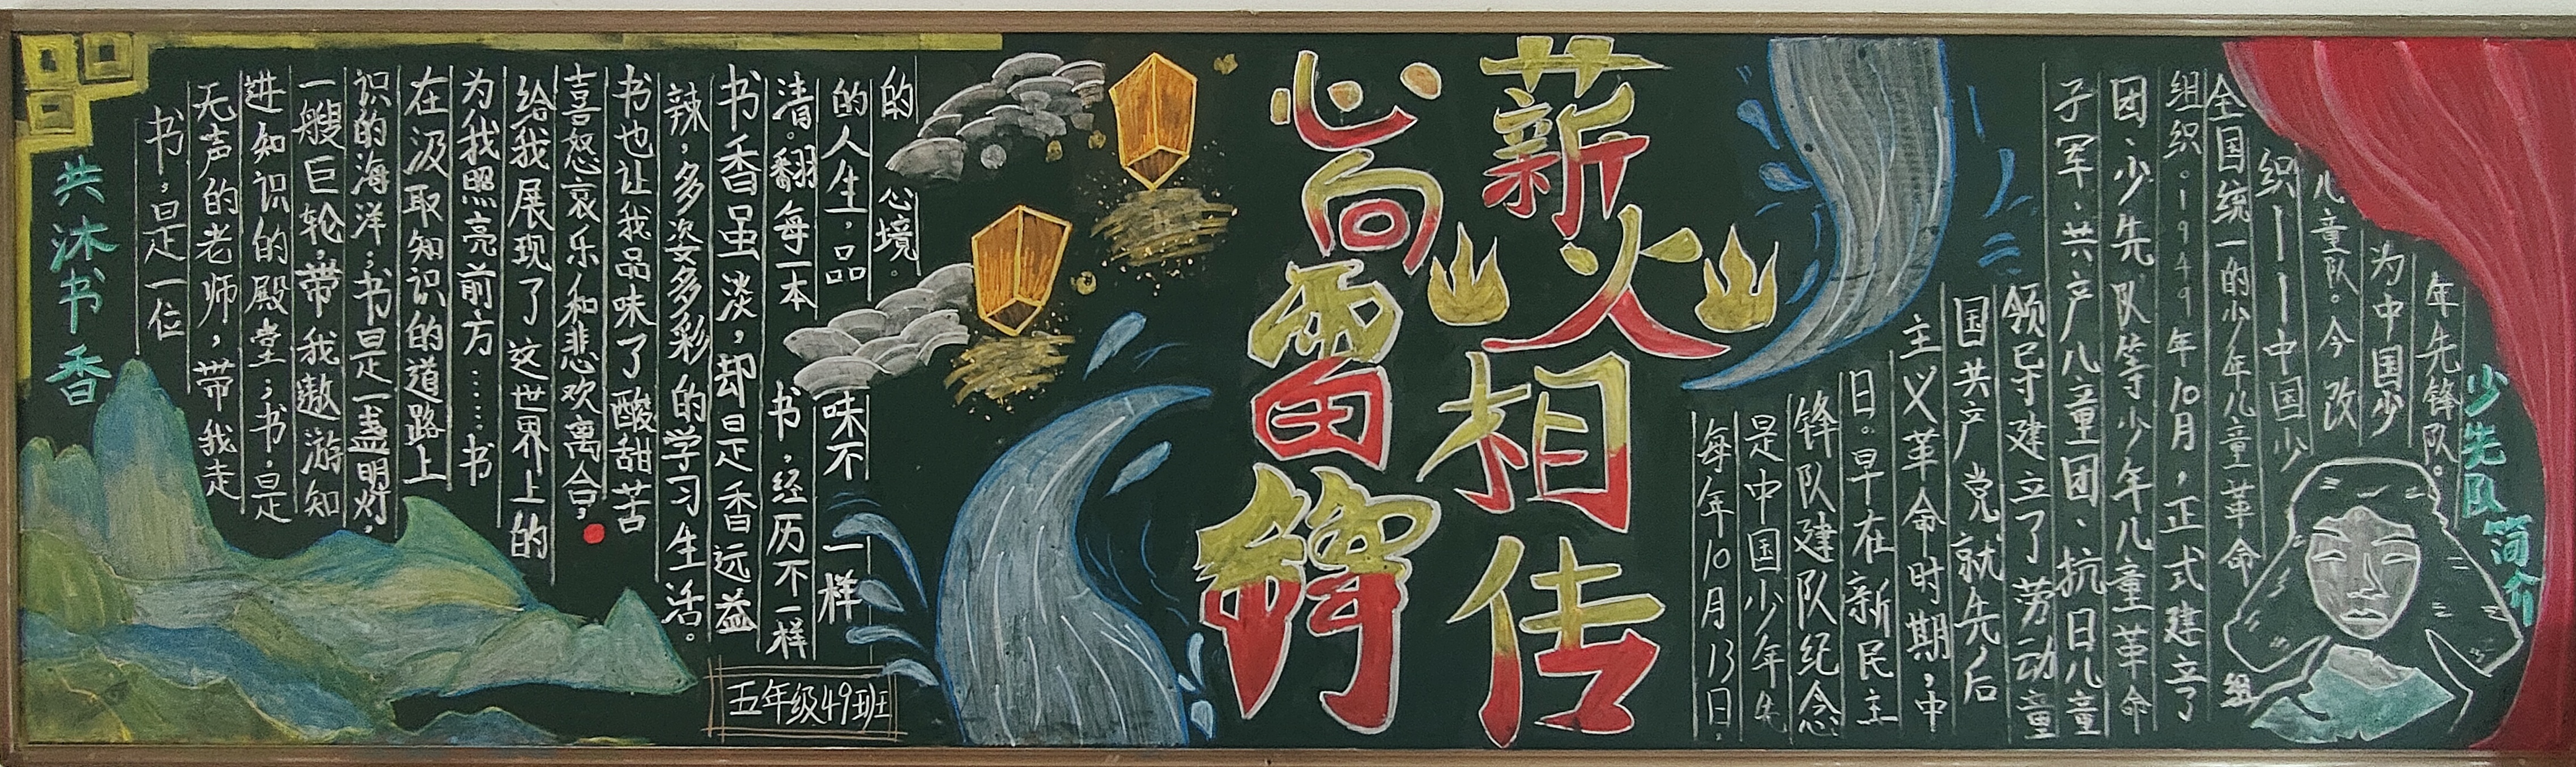 共沐书香
书,是一位
无声的老师,带我走
进知识的殿堂;书是
一艘巨轮,带我遨游知
识的海洋;书是一盏明灯,
在汲取知识的道路上
为我照亮前方……书
给我展现了这世界上的
喜怒哀乐和悲欢离合,
书也让我品味了酸甜苦
辣,多姿多彩的学习生活。
书香虽淡,却是香远益
清。翻每一本书,经历不一样
的人生,品味不一样
的心境。
五年级49班
薪火相传
心向雷锋
少先队简介
每年10月13日,
是中国少年先
锋队建队纪念
日。早在新民主
主义革命时期,中
国共产党就先后
领导建立了劳动童
子军、共产儿童团、抗日儿童
团、少先队等少年儿童革命
组织。1949年10月,正式建立了
全国统一的少年儿童革命组
织——中国少
儿童队。今改
为中国少
年先锋队。